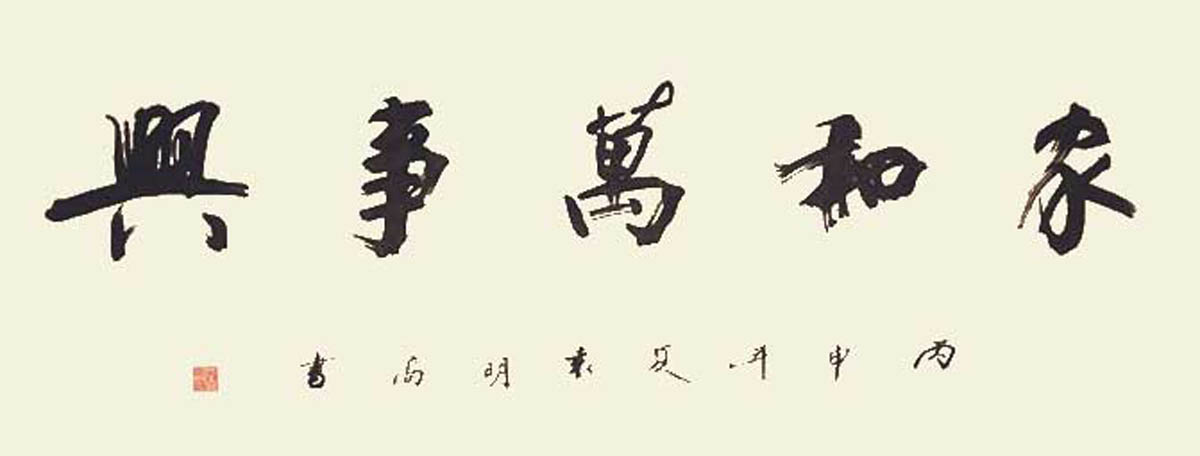 家和萬事興
丙申年夏袁明尚書